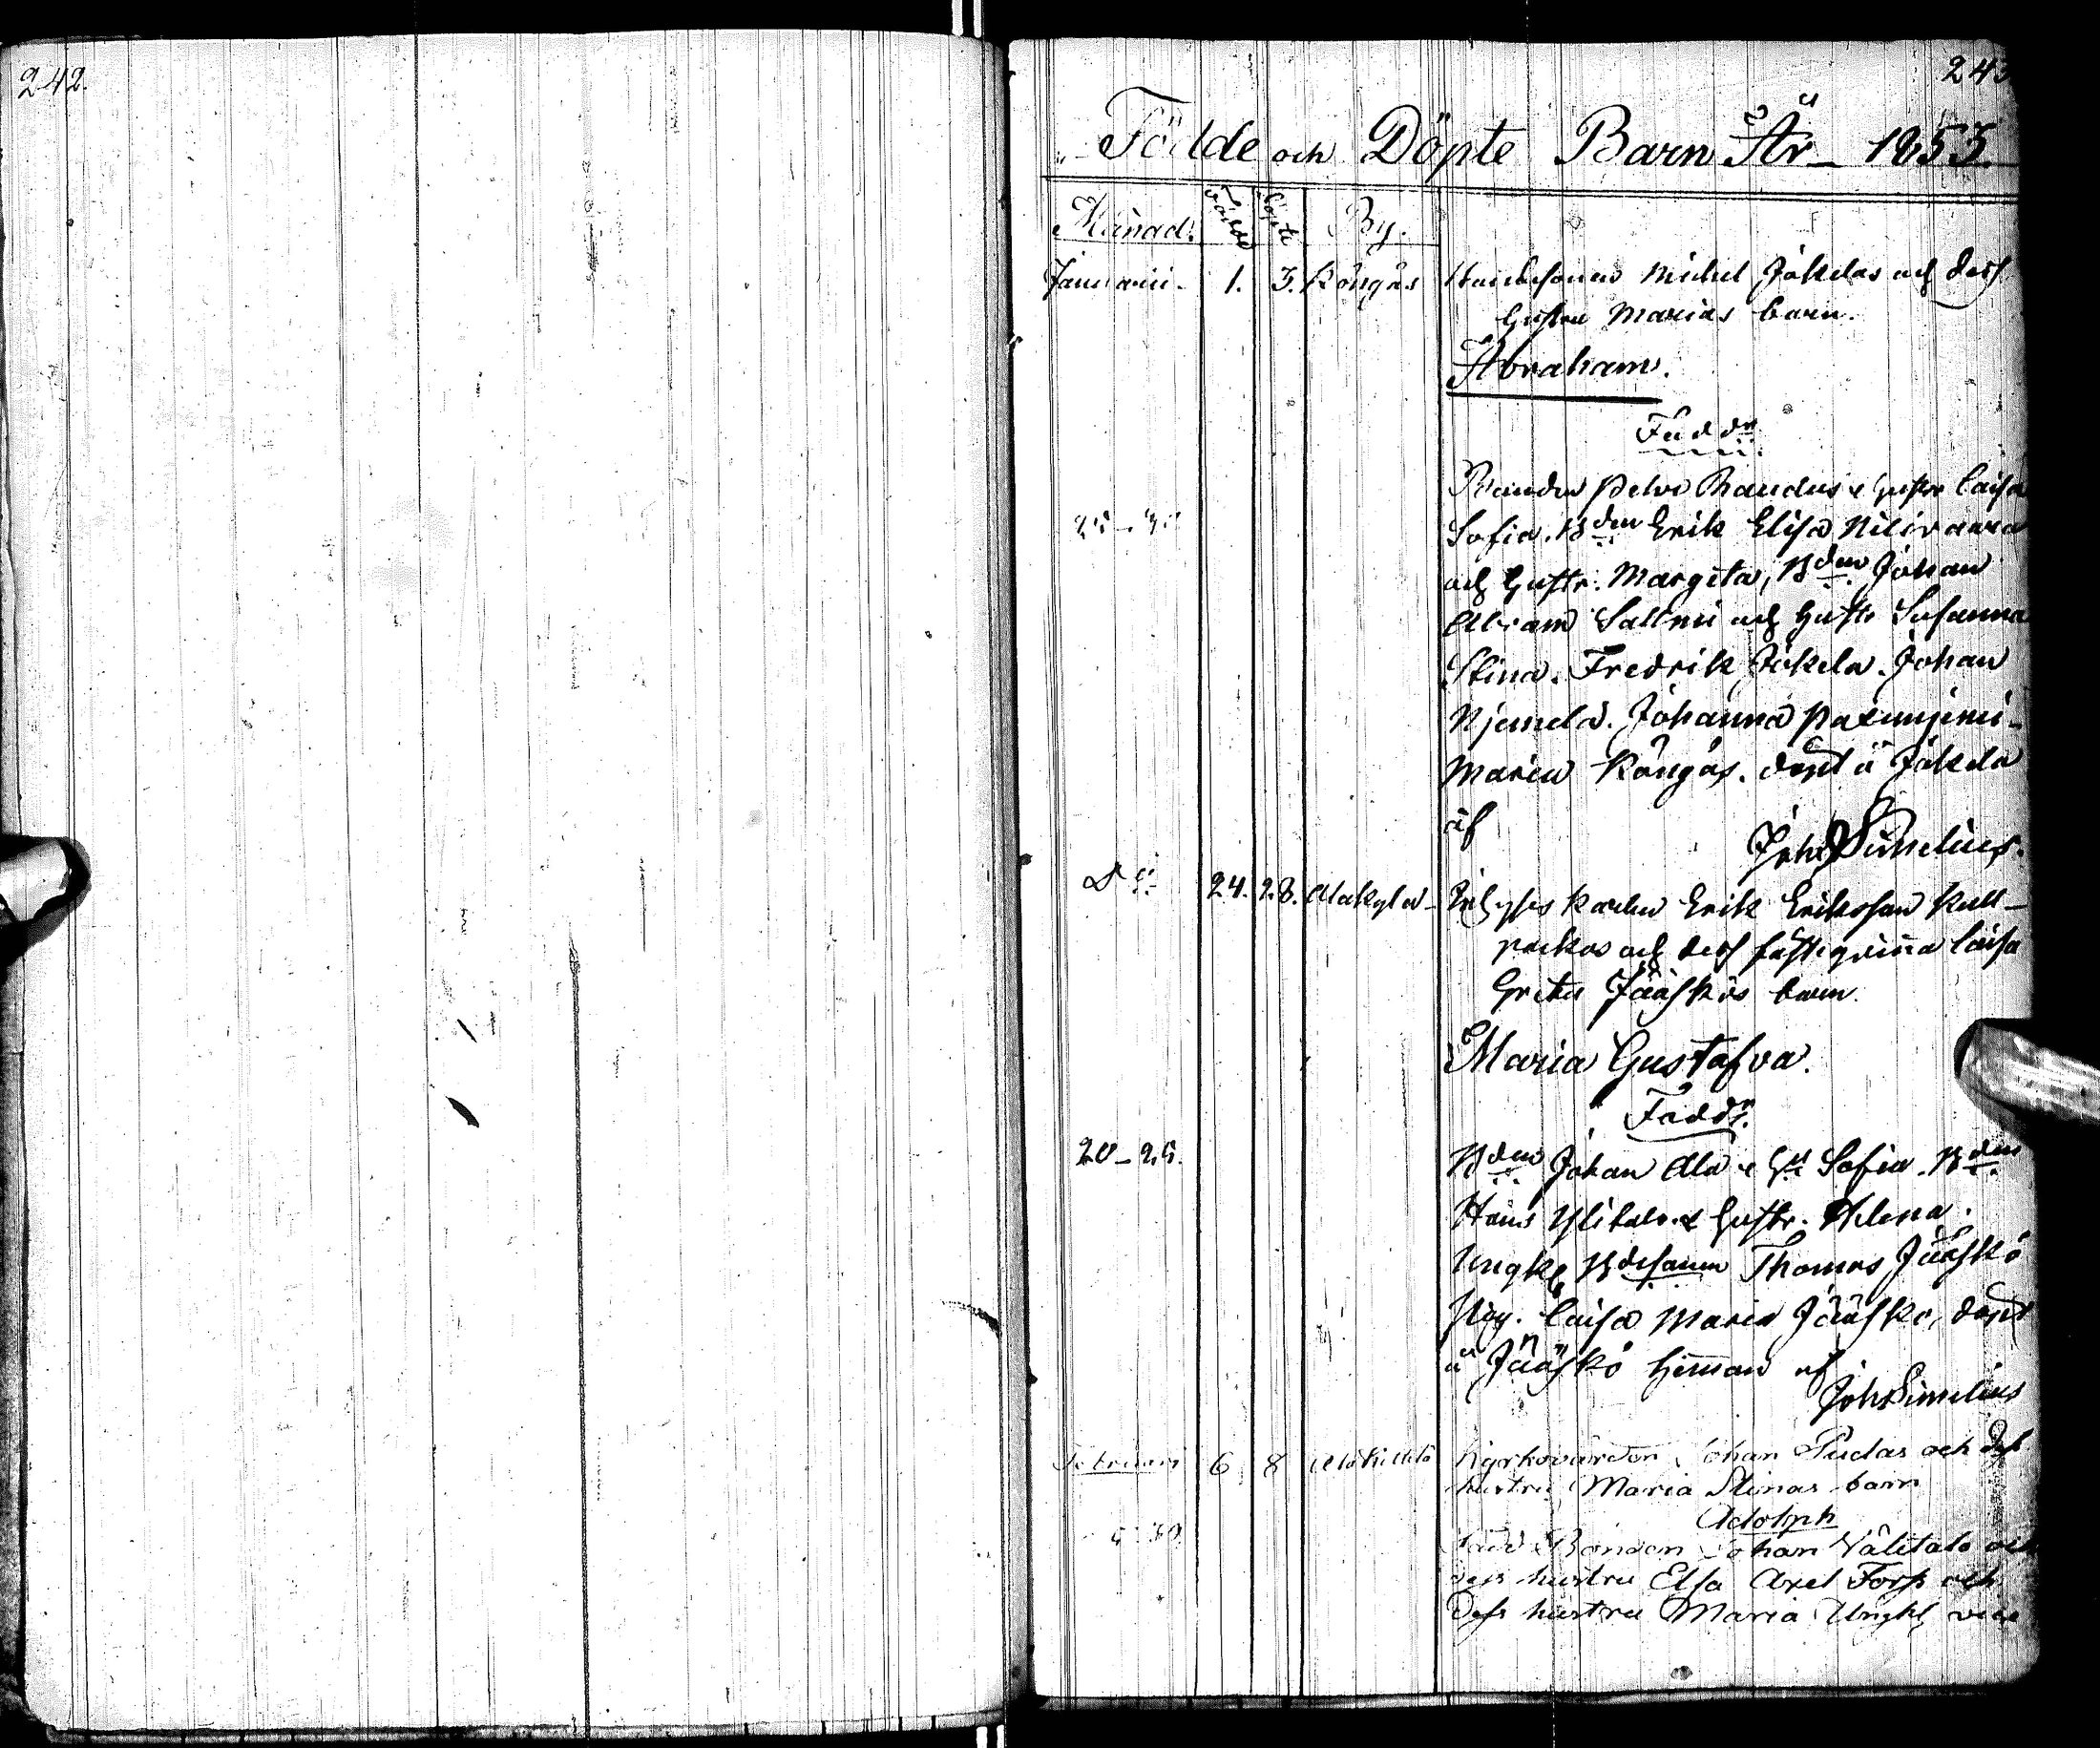 242.
243
Födde och Döpte Barn År 1853.
Månad. Födde Döpte By.
Januarii. 1. 3. Köngäs Bondesonen Michel Jökelas och dess
hustru Marias barn.
Abraham.
Faddr
Bonden Petri hustr Caisa
25-30 Sofia. Bden Erik Elisa Nilivaara
och hustr. Margeta, Bden Johan
Abram Salmi och hustr Susanna
Stina. Fredrik Jokela. Johan
Njemela. Johanna
Maria Köngäs. döpt å Jokela
af
Joh Simelius.
Do 24. 28. Alakylä Erik Eriksson
och dess fästeqvinna Caisa
Greta Jääskös barn.
Maria Gustafva.
Faddr.
20-25. Bden Johan Ala & Hu Sofia. Bden
Hans Ylitalo & hustr. Helena.
Ungk Bdesonen Thomas Jääskö
Pig. Caisa Maria Jääskö, döpt
å Jääskö hemman af
Joh Simelius
Februari 6 8 Alakittilä Kyrkovärden Johan Pudas och dess
hustru Maria Stinas barn
Adolph
30 Fadd Bonden Johan Välitalo och
dess hustru Elsa Axel Forss och
Dess hustru Maria Ungk